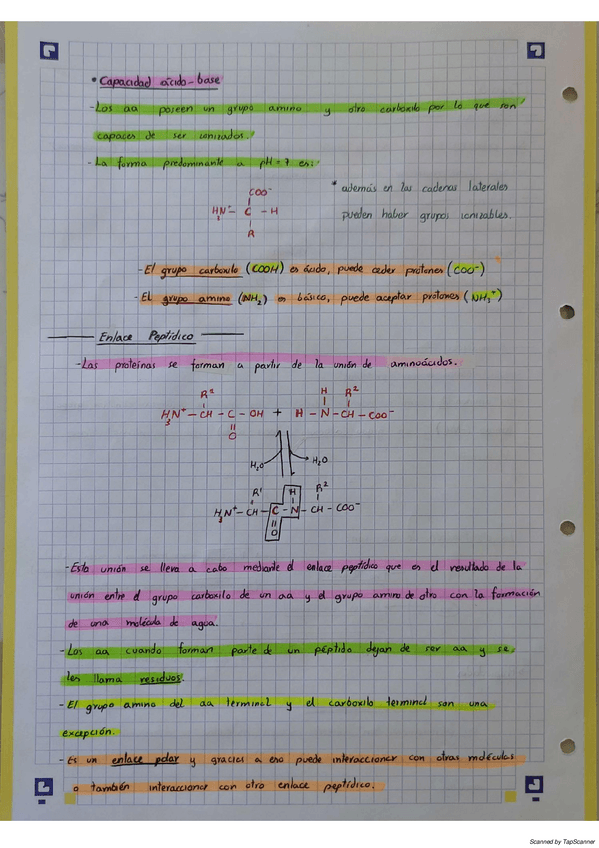 * Capacidad ácido-base
- Los aa poseen un grupo amino y otro carboxilo por lo que son
capaces de ser ionizados.
- La forma predominante a pH = 7 es:
COO⁻
H₃N⁺ - C - H
R
* además en las cadenas laterales
pueden haber grupos ionizables.
- El grupo carboxilo (COOH) es ácido, puede ceder protones (COO⁻)
- El grupo amino (NH₂) es básico, puede aceptar protones (NH₃⁺)
Enlace Peptídico
- Las proteínas se forman a partir de la unión de aminoácidos.
R² H R²
H₃N⁺ - CH - C - OH + H - N - CH - COO⁻
O
H₂O H₂O
R' H R²
H₃N⁺ - CH - C - N - CH - COO⁻
O
- Esta unión se lleva a cabo mediante el enlace peptídico que es el resultado de la
unión entre el grupo carboxilo de un aa y el grupo amino de otro con la formación
de una molécula de agua.
- Los aa cuando forman parte de un péptido dejan de ser aa y se
les llama residuos.
- El grupo amino del aa terminal y el carboxilo terminal son una
excepción.
- Es un enlace polar y gracias a eso puede interaccionar con otras moléculas
o también interaccionar con otro enlace peptídico.
Scanned by TapScanner